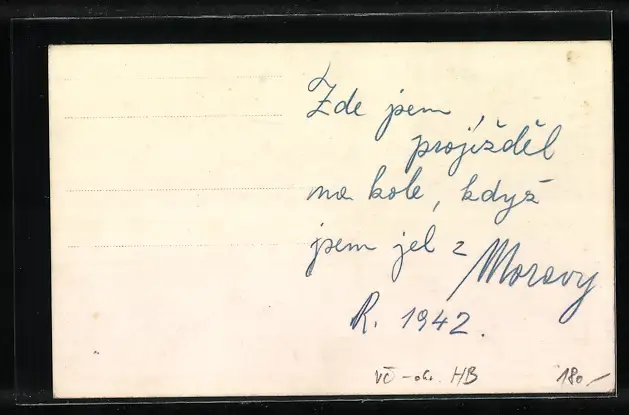 Zde jsem
projížděl
na kole, když
jsem jel z Moravy
R. 1942.
VČ - okr. HB
180,-